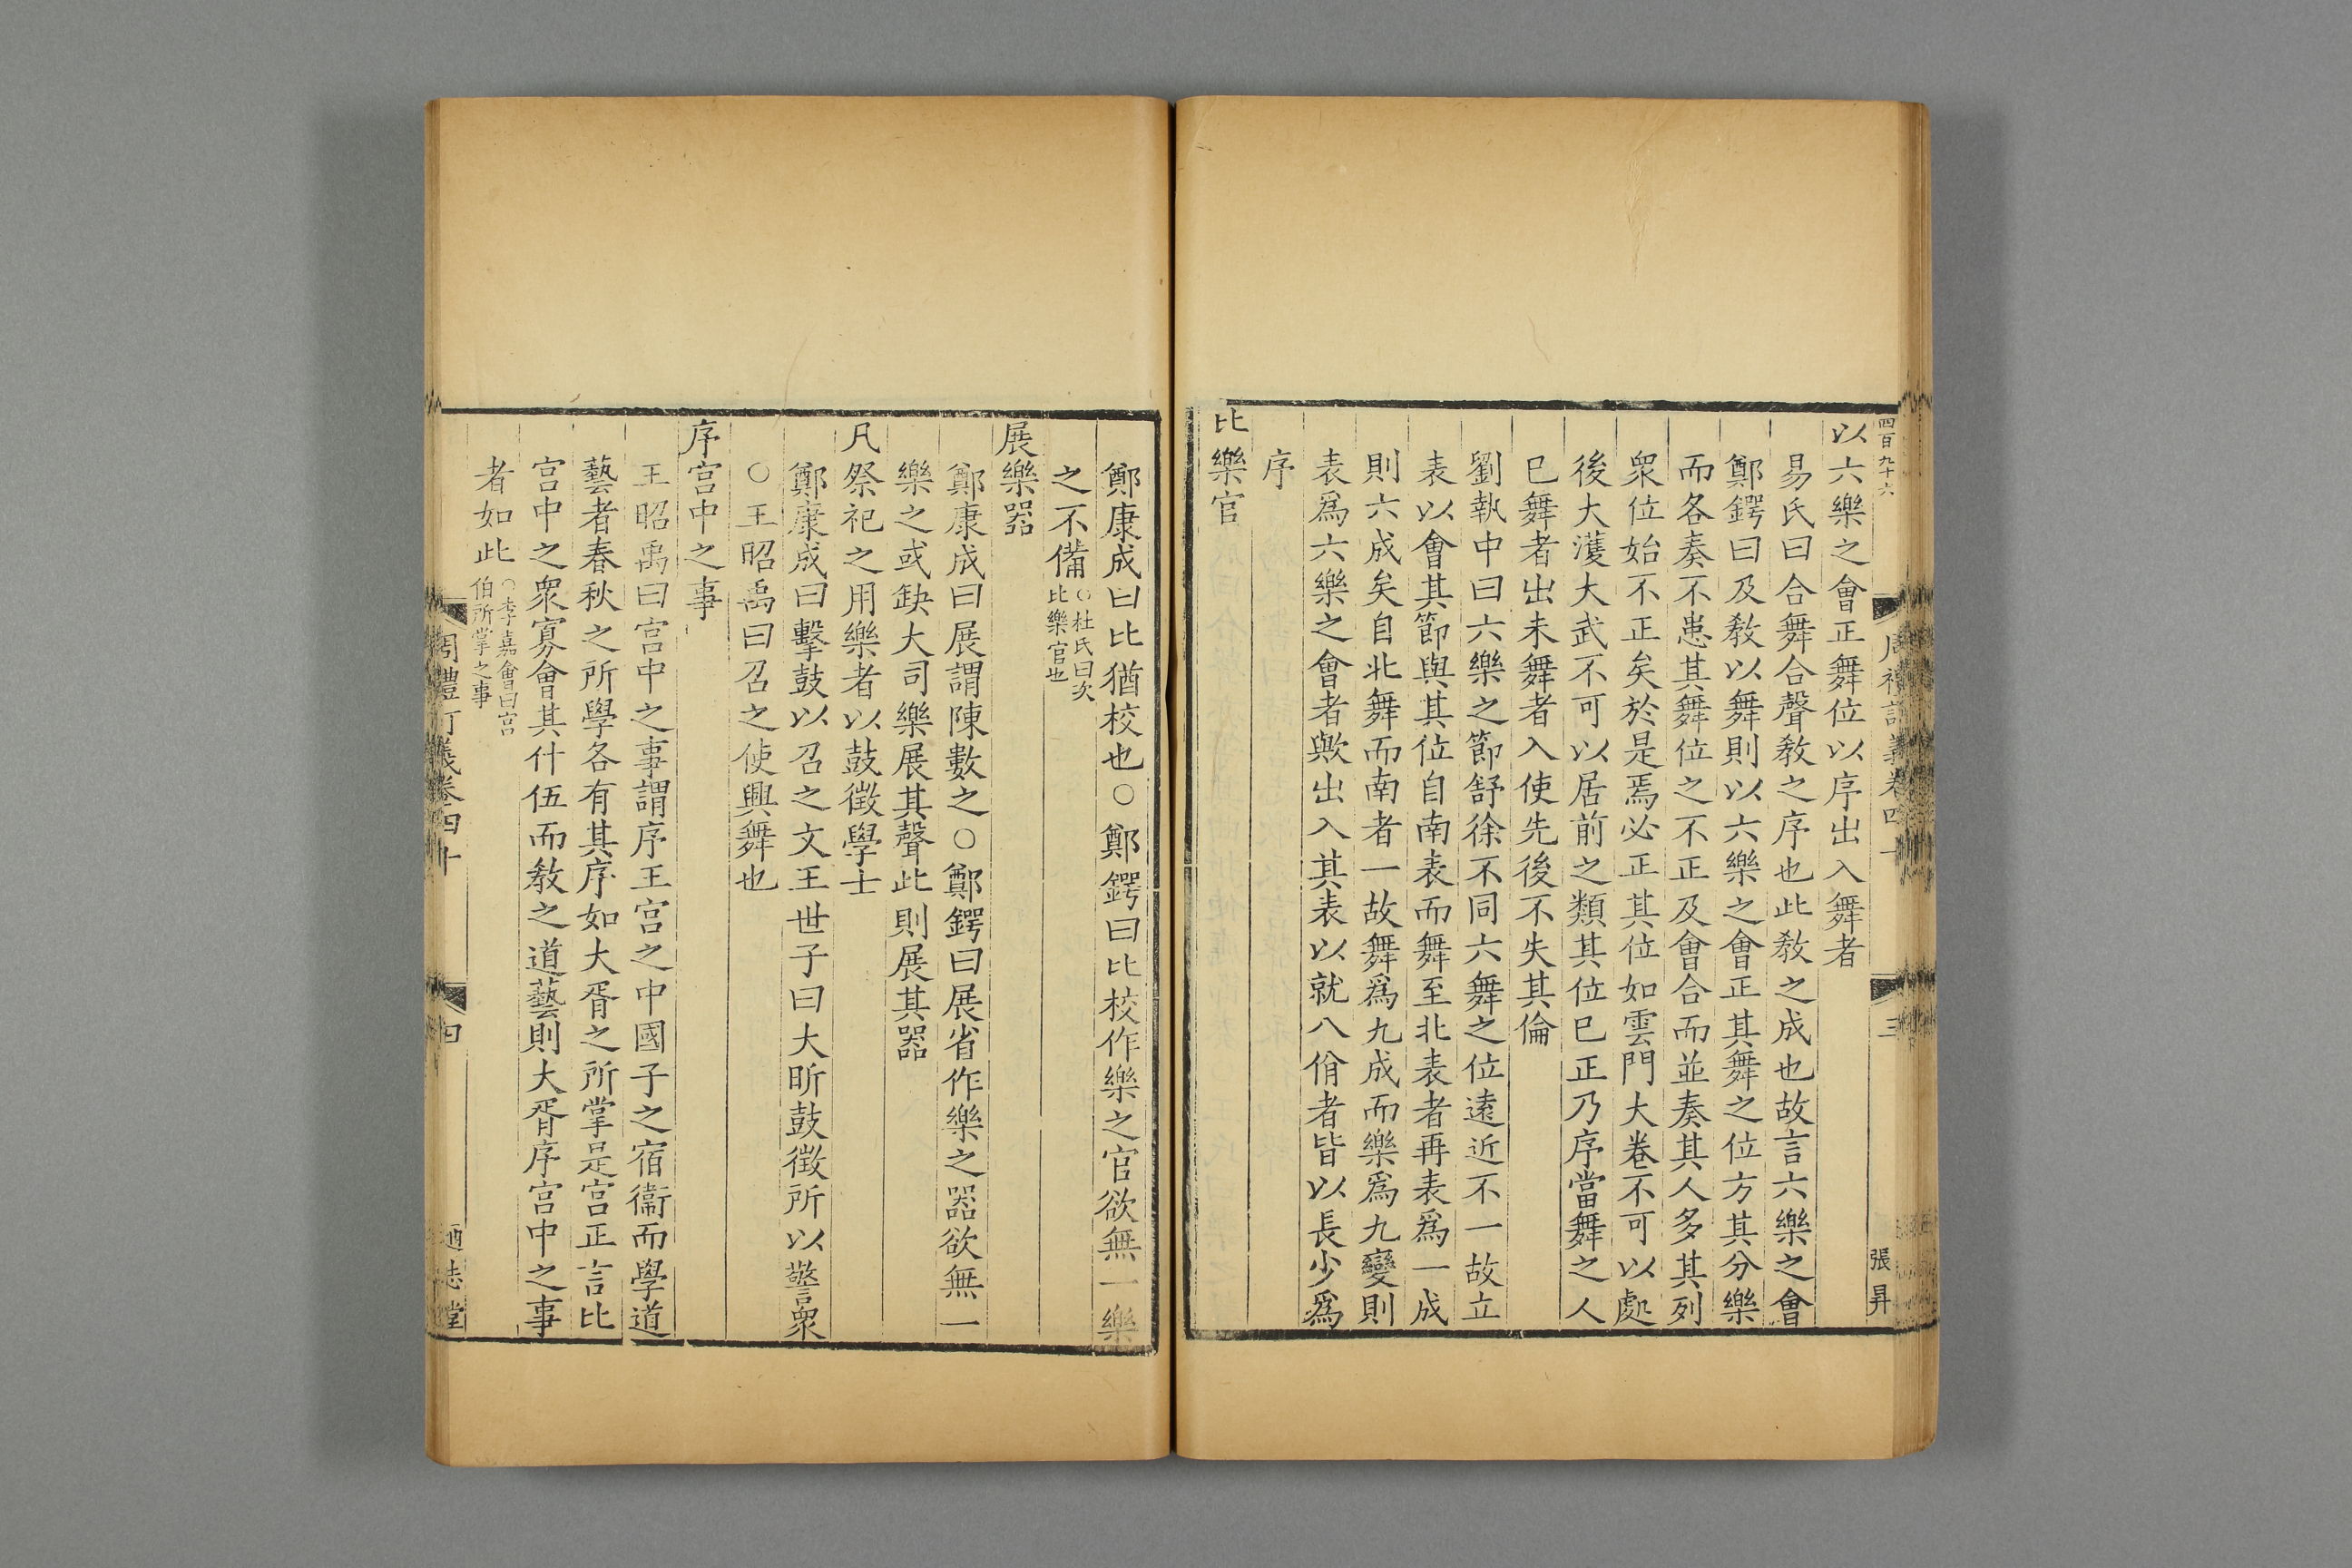 四百九十六
周禮訂義卷四十
三
張昇
以六樂之會正舞位以序出入舞者
易氏曰合舞合聲敎之序也此敎之成也故言六樂之會
鄭鍔曰及敎以舞則以六樂之會正其舞之位方其分樂
而各奏不患其舞位之不正及會合而並奏其人多其列
衆位始不正矣於是焉必正其位如雲門大卷不可以處
後大濩大武不可以居前之類其位已正乃序當舞之人
已舞者出未舞者入使先後不失其倫
劉執中曰六樂之節舒徐不同六舞之位遠近不一故立
表以會其節與其位自南表而舞至北表者再表爲一成
則六成矣自北舞而南者一故舞爲九成而樂爲九變則
表爲六樂之會者歟出入其表以就八佾者皆以長少爲
序
比樂官
鄭康成曰比猶校也○鄭鍔曰比校作樂之官欲無一樂
之不備○杜氏曰次比樂官也
展樂器
鄭康成曰展謂陳數之○鄭鍔曰展省作樂之器欲無一
樂之或缺大司樂展其聲此則展其器
凡祭祀之用樂者以鼓徵學士
鄭康成曰擊鼓以召之文王世子曰大昕鼓徵所以警衆
○王昭禹曰召之使興舞也
序宮中之事
王昭禹曰宮中之事謂序王宮之中國子之宿衞而學道
藝者春秋之所學各有其序如大胥之所掌是宮正言比
宮中之衆寡會其什伍而敎之道藝則大胥序宮中之事
者如此○李嘉會曰宮伯所掌之事
周禮訂義卷四十
四
通志堂